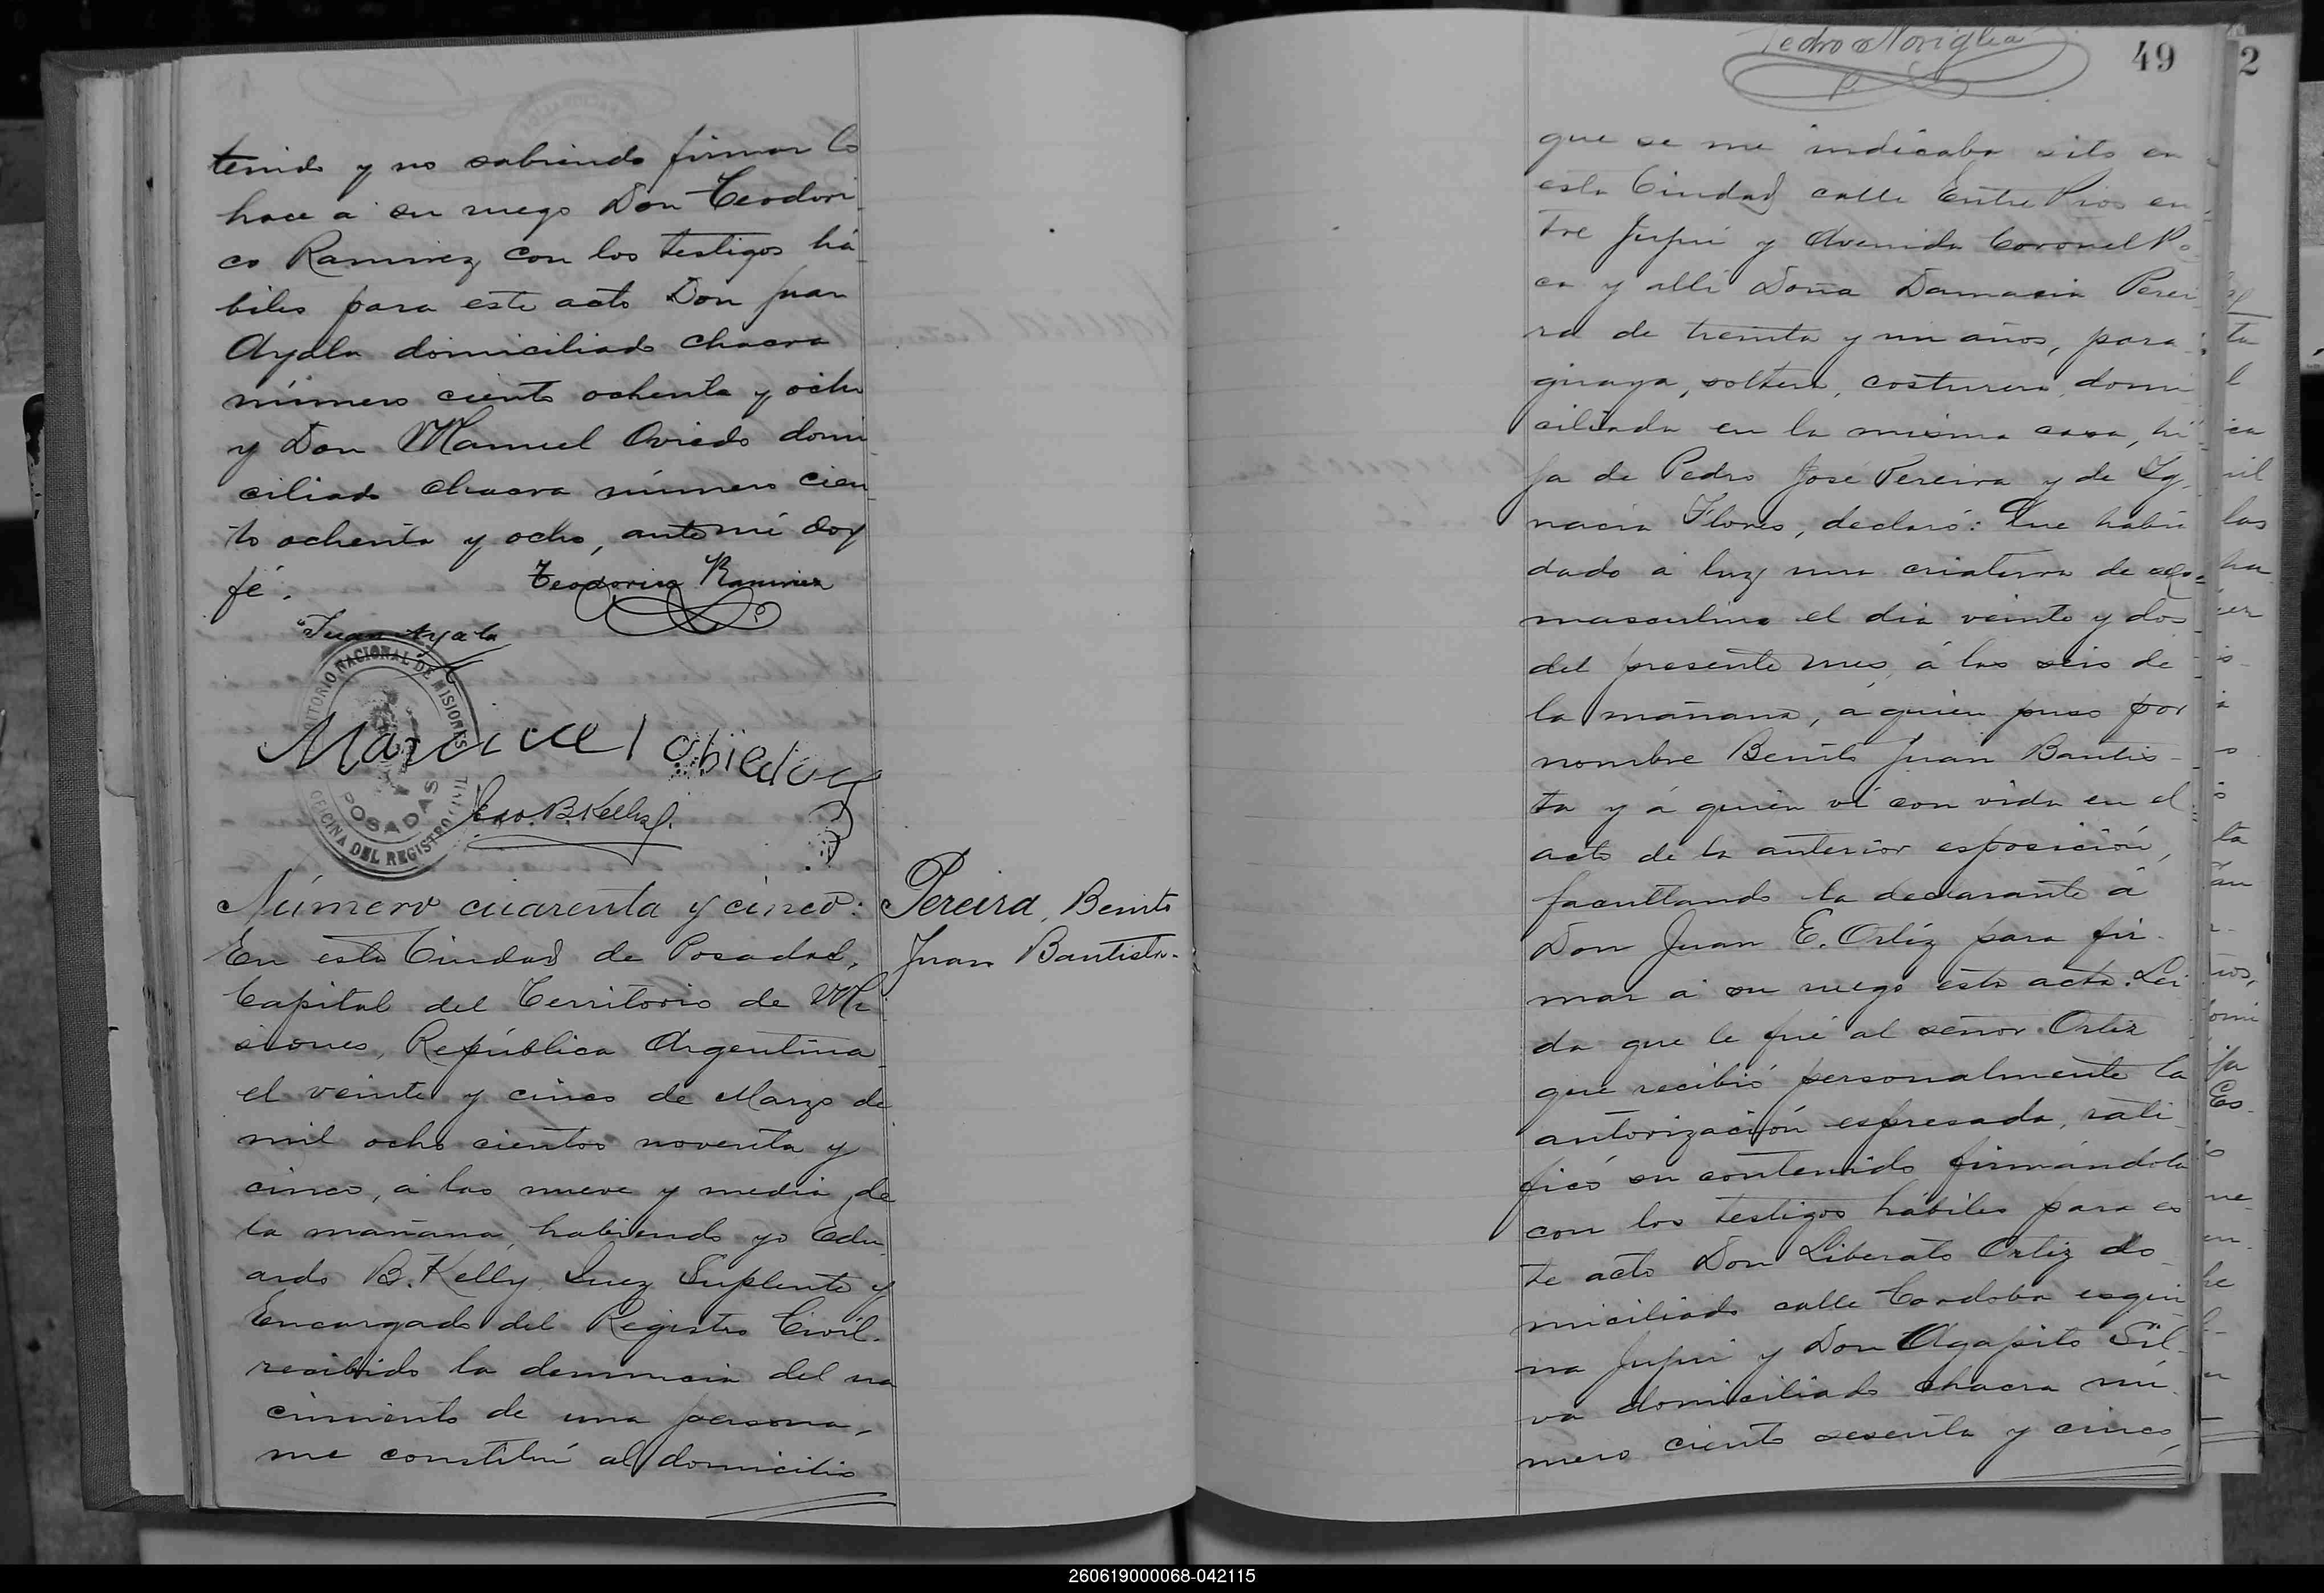 tenido y no sabiendo firmar lo
hace a su ruego Don Teodori
co Ramirez con los testigos há
biles para este acto Don Juan
Ayala domiciliado chacra
número ciento ochenta y ocho
y Don Manuel Oviedo domi
ciliado chacra número cien
to ochenta y ocho, ante mi doy
fé.
Teodorico Ramirez
Juan Ayala
TERRITORIO NACIONAL DE MISIONES
POSADAS
OFICINA DEL REGISTRO CIVIL
Manuel Obiedo
Edo. B. Kelly
Número cuarenta y cinco:
Pereira, Benito
Juan Bautista.
En esta Ciudad de Posadas,
Capital del Territorio de Mi
siones, República Argentina
el veinte y cinco de Marzo de
mil ocho cientos noventa y
cinco, á las nueve y media de
la mañana, habiendo yo Edu
ardo B. Kelly Juez Suplente y
Encargado del Registro Civil.
recibido la denuncia del na
cimiento de una persona,
me constituí al domicilio
Pedro Noriglia
49
2
que se me indicaba sito en
esta Ciudad calle Entre Rios en
tre Jujui y Avenida Coronel Ro
ca y allí Doña Damasia Perei
ra de treinta y un años, para
guaya, soltera, costurera, domi
ciliada en la misma casa, hi
ja de Pedro José Pereira y de Ig
nacia Flores, declaró: Que habia
dado á luz una criatura de sexo
masculino el dia veinte y dos
del presente mes, á las seis de
la mañana, á quien puso por
nombre Benito Juan Bautis-
ta y á quien ví con vida en el
acto de la anterior esposición,
facultando la declarante á
Don Juan E. Ortíz para fir-
mar á su ruego esta acta. Lei
da que le fué al señor Ortiz
que recibió personalmente la
autorización espresada, rati
ficó su contenido firmándola
con los testigos hábiles para es
te acto Don Liberato Ortiz do
miciliado calle Cordoba esqui
na Jujui y Don Agapito Sil
va domiciliado chacra nú
mero ciento sesenta y cinco,
260619000068-042115